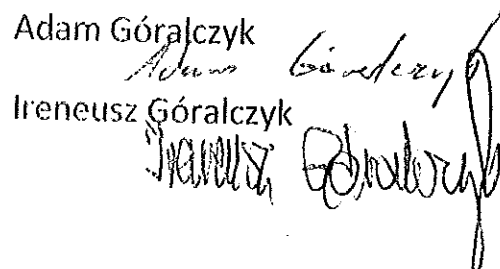 Adam Góralczyk
Adam Góralczyk
Ireneusz Góralczyk
Ireneusz Góralczyk